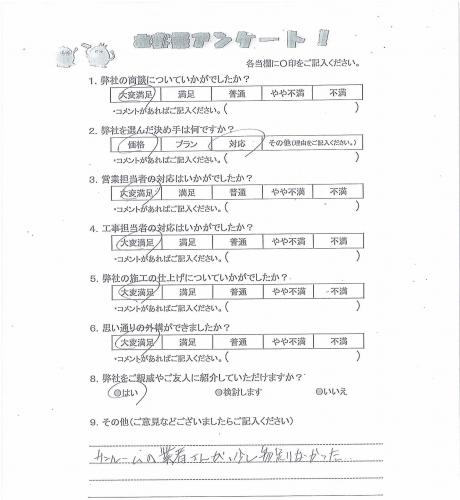 お客様アンケート!
各当欄に〇印をご記入ください。
1. 弊社の商談についていかがでしたか?
大変満足 満足 普通 やや不満 不満
・コメントがあればご記入ください。( )
2. 弊社を選んだ決め手は何ですか?
価格 プラン 対応 その他(理由をご記入ください。)
・コメントがあればご記入ください。( )
3. 営業担当者の対応はいかがでしたか?
大変満足 満足 普通 やや不満 不満
・コメントがあればご記入ください。( )
4. 工事担当者の対応はいかがでしたか?
大変満足 満足 普通 やや不満 不満
・コメントがあればご記入ください。( )
5. 弊社の施工の仕上げについていかがでしたか?
大変満足 満足 普通 やや不満 不満
・コメントがあればご記入ください。( )
6. 思い通りの外構ができましたか?
大変満足 満足 普通 やや不満 不満
・コメントがあればご記入ください。( )
8. 弊社をご親戚やご友人に紹介していただけますか?
◎はい ◎検討します ◎いいえ
9. その他(ご意見などございましたらご記入ください)
サンルームの業者さんが、少し物足りなかった…